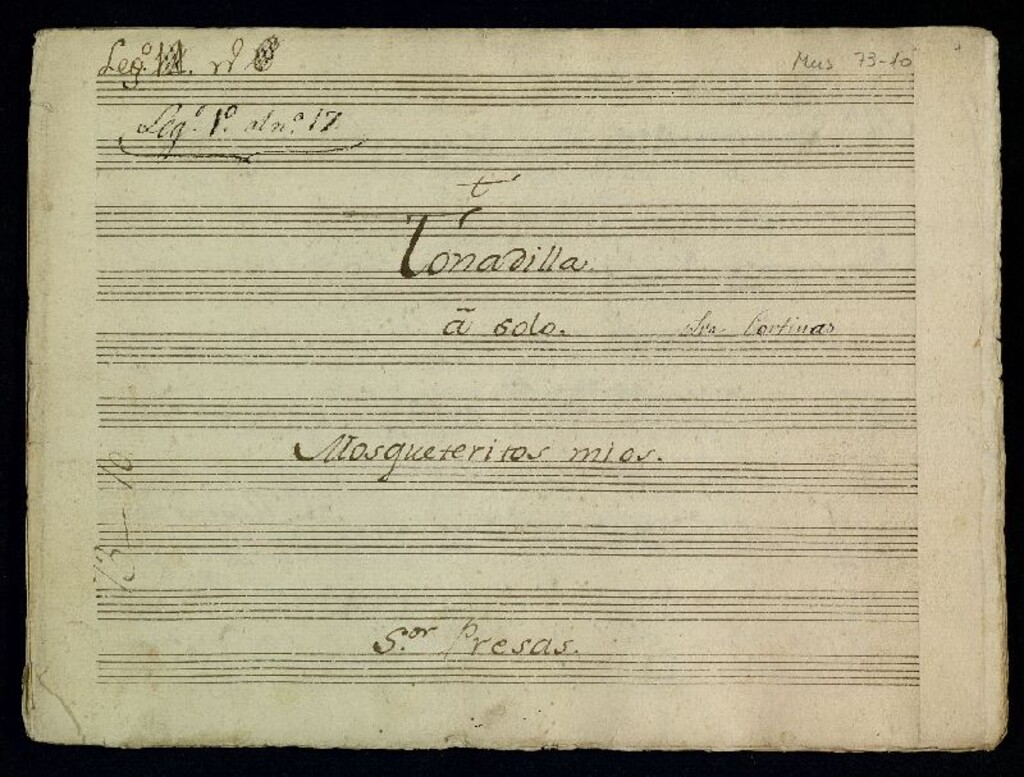 Leg.º nº
Mus 73-10
Leg.º 1.º al n.º 17.
t
Tonadilla
â solo.
Sra Cortinas
Mosqueteritos mios.
73-10
S.or Presas.